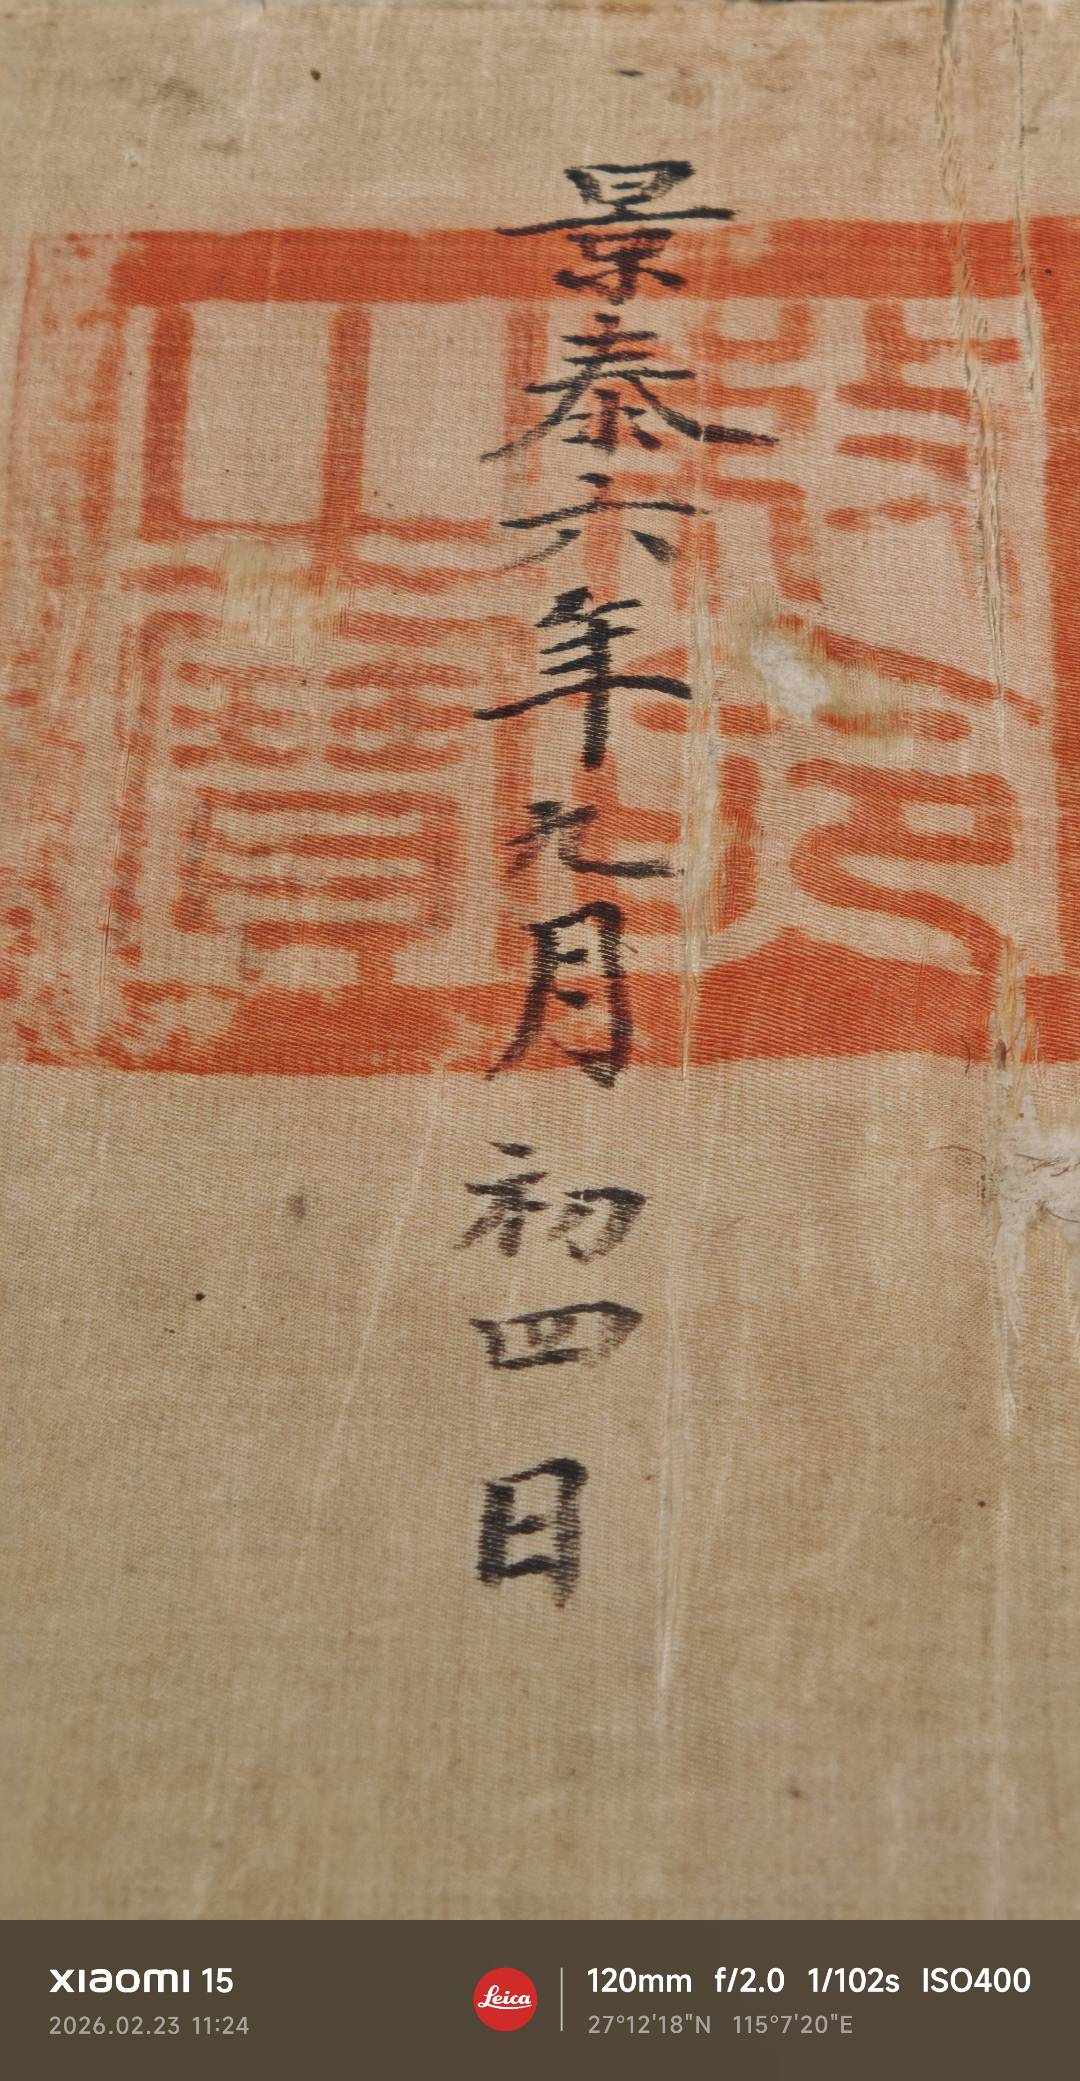 景泰六年九月初四日
敕命
之寶
XIAOMI 15
2026.02.23 11:24
Leica
120mm f/2.0 1/102s ISO400
27°12'18"N 115°7'20"E